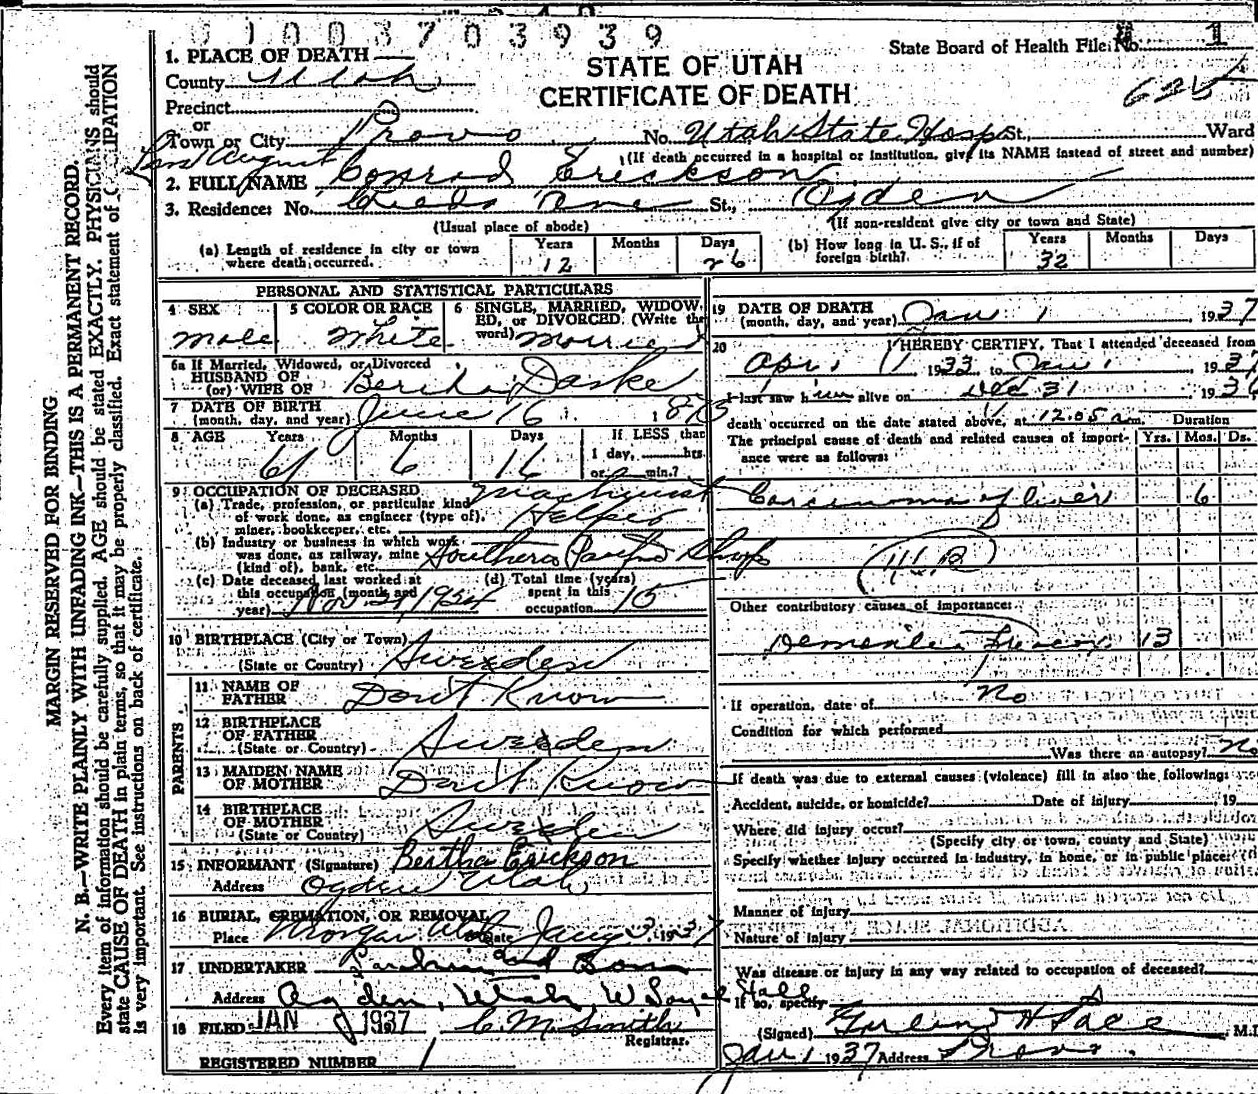 0 1 0 0 3 7 0 3 9 3 9
State Board of Health File No. 1
1. PLACE OF DEATH
County Utah
STATE OF UTAH
CERTIFICATE OF DEATH
Precinct
or
Town or City Provo No. Utah State Hosp St., Ward
(If death occurred in a hospital or institution, give its NAME instead of street and number)
August
2. FULL NAME Conrad Erickson
3. Residence: No. St., Ogden
(Usual place of abode) (If non-resident give city or town and State)
(a) Length of residence in city or town where death occurred. Years 12 Months Days 26
(b) How long in U. S., if of foreign birth? Years 32 Months Days
PERSONAL AND STATISTICAL PARTICULARS
4 SEX Male
5 COLOR OR RACE White
6 SINGLE, MARRIED, WIDOWED, or DIVORCED (Write the word) Married
6a If Married, Widowed, or Divorced
HUSBAND OF
(or) WIFE OF Bertha Daske
7 DATE OF BIRTH
(month, day, and year) June 16 1875
8 AGE Years 61 Months 6 Days 16 If LESS than 1 day, hrs. or min.?
9 OCCUPATION OF DECEASED
(a) Trade, profession, or particular kind of work done, as engineer (type of), miner, bookkeeper, etc. Machinist Helper
(b) Industry or business in which work was done, as railway, mine (kind of), bank, etc. Southern Pacific Shop
(c) Date deceased last worked at this occupation (month and year) Nov 1924
(d) Total time (years) spent in this occupation 15
10 BIRTHPLACE (City or Town)
(State or Country) Sweden
PARENTS
11 NAME OF FATHER Don't Know
12 BIRTHPLACE OF FATHER
(State or Country) Sweden
13 MAIDEN NAME OF MOTHER Don't Know
14 BIRTHPLACE OF MOTHER
(State or Country) Sweden
15 INFORMANT (Signature) Bertha Erickson
Address Ogden Utah
16 BURIAL, CREMATION, OR REMOVAL
Place Morgan Utah Date Jany 3, 1937
17 UNDERTAKER and Sons
Address Ogden, Utah
18 FILED JAN 1937 C. M. Smith
Registrar.
REGISTERED NUMBER 1
19 DATE OF DEATH
(month, day, and year) Jan 1, 1937
20 I HEREBY CERTIFY, That I attended deceased from
Apr. 11 1933 to Jan 1 1937
I last saw him alive on Dec 31 1936
death occurred on the date stated above, at 12.05 a m. Duration
The principal cause of death and related causes of importance were as follows: Yrs. Mos. Ds.
Carcinoma of liver 6
Other contributory causes of importance:
Dementia Praecox 13
If operation, date of No
Condition for which performed
Was there an autopsy? No
If death was due to external causes (violence) fill in also the following:
Accident, suicide, or homicide? Date of injury 19
Where did injury occur?
(Specify city or town, county and State)
Specify whether injury occurred in industry, in home, or in public place:
Manner of injury
Nature of injury
Was disease or injury in any way related to occupation of deceased?
If so, specify
(Signed) Garland H Pace M.D.
Jan 1 1937 Address Provo.
MARGIN RESERVED FOR BINDING.
N. B.—WRITE PLAINLY WITH UNFADING INK—THIS IS A PERMANENT RECORD.
Every item of information should be carefully supplied. AGE should be stated EXACTLY. PHYSICIANS should
state CAUSE OF DEATH in plain terms, so that it may be properly classified. Exact statement of
is very important. See instructions on back of certificate.